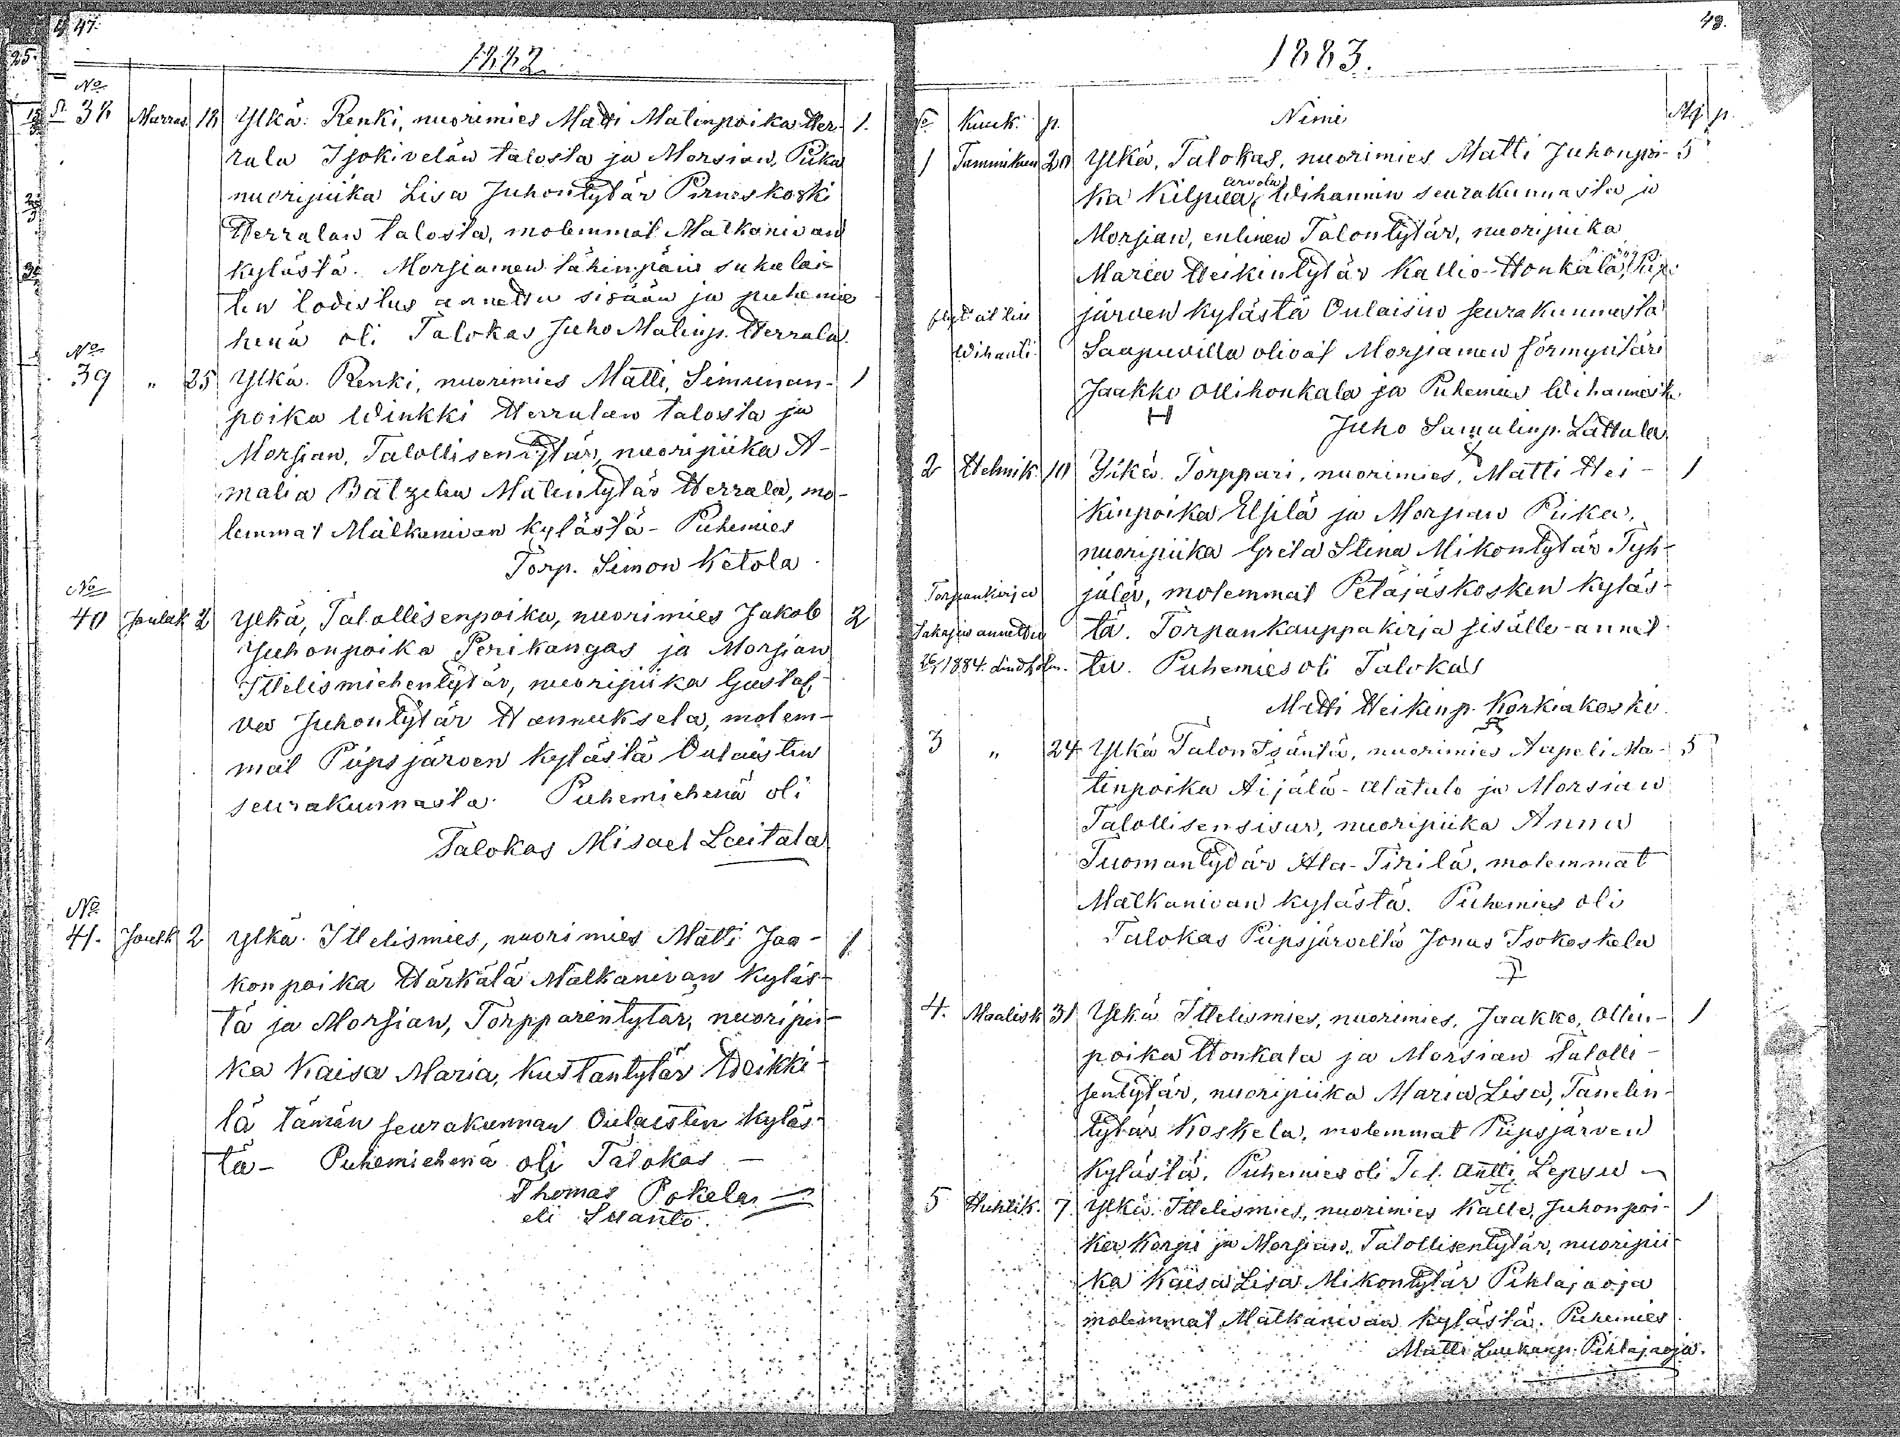 47.
1882.
No
38 Marras 18 Ylkä. Renki, nuorimies Matti Matinpoika Her- 1.
rala Isokivelän talosta ja Morsian, Piika
nuoripiika Lisa Juhontytär Pirneskoski
Herralan talosta, molemmat Matkanivan
kylästä. Morsiamen lähinpäin sukulai-
ten todistus annettu sisään ja puhemie
henä oli Talokas Juho Matinp. Herrala.
No
39 " 25 Ylkä. Renki, nuorimies Matti, Simunan- 1
poika Winkki Herralan talosta ja
Morsian, Talollisentytär, nuoripiika A-
malia Matintytär Herrala, mo-
lemmat Matkanivan kylästä - Puhemies
Torp. Simon Ketola.
No
40 Jouluk 2 Ylkä, Talollisenpoika, nuorimies Jakob 2
Juhonpoika Perikangas ja Morsian
Ittelismiehentytär, nuoripiika Gustaf-
va Juhontytär Hannuksela, molem-
mat Piipsjärven kylästä Oulaisten
seurakunnasta. Puhemiehenä oli
Talokas Misael Lauitala
No
41. Joulk 2 Ylkä. Ittelismies, nuorimies Matti Jaa- 1.
konpoika Härkälä Matkanivan kyläs-
tä ja Morsian, Torpparintytär, nuoripii-
ka Kaisa Maria, Kustantytär Heikki-
lä tämän seurakunnan Oulaisten kyläs-
tä - Puhemiehenä oli Talokas -
Thomas Pokela
eli Suanto.
48.
1883.
No Kuuk. p. Nimi Mk p.
1 Tammikuu 20 Ylkä, Talokas, nuorimies Matti Juhonpoi- 5
ka Kilpua, arvola Wihannin seurakunnasta ja
Morsian, entinen Talontytär, nuoripiika
Maria Heikintytär Kallio-Honkala, Piip-
järven kylästä Oulaisin seurakunnasta
Wihanti.
Saapuvilla olivat Morsiamen förmyntäri
Jaakko Ollihonkala ja Puhemies Wihannisk.
Juho Samulinp. Lattula.
2 Helmik. 10 Ylkä. Torppari, nuorimies, Matti Hei- 1
kinpoika Elsilä ja Morsian Piika,
nuoripiika Greta Stina Mikontytär Tyh-
jälä, molemmat Petäjäskosken kyläs-
tä. Torpankauppakirja sisälle annet-
tu. Puhemies oli Talokas
Matti Heikinp. Korkiakoski.
Torpankirja
Takajsin annettu
1884. Lindholm.
3 " 24 Ylkä Talon Isäntä, nuorimies Aapeli Ma- 5
tinpoika Aijälä-Alatalo ja Morsian
Talollisensisar, nuoripiika Anna
Tuomantytär Ala-Tirilä, molemmat
Matkanivan kylästä. Puhemies oli
Talokas Piipsjärveltä Jonas Isokoskela
4. Maalisk 31 Ylkä Ittelismies, nuorimies, Jaakko, Ollin- 1
poika Honkala ja Morsian Talolli-
sentytär, nuoripiika Maria Lisa, Tanelin-
tytär Koskela, molemmat Piipsjärven
kylästä. Puhemies oli Tal. Antti Lepsu
5 Huhtik. 7. Ylkä. Ittelismies, nuorimies Kalle, Juhonpoi- 1
ka Korpi ja Morsian, Talollisentytär, nuoripii-
ka Kaisa Lisa Mikontytär Pihlajaoja
molemmat Matkanivan kylästä. Puhemies
Matti Luukanp. Pihlajaoja.